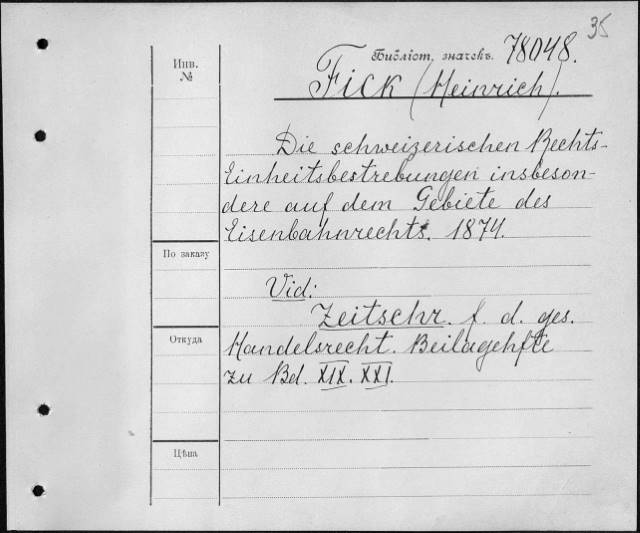 35
Библіот. значекъ. 78048.
Инв.
№
Fick (Heinrich).
Die schweizerischen Rechts-
Einheitsbestrebungen insbeson-
dere auf dem Gebiete des
Eisenbahnrechts. 1874.
По заказу
Vid:
Zeitschr. f. d. ges.
Откуда
Handelsrecht. Beilagehfte
zu Bd. XIX. XXI.
Цѣна